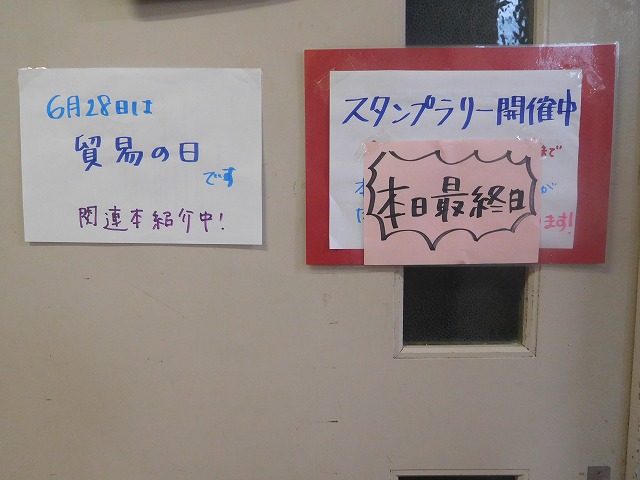 6月28日は
貿易の日
です
関連本紹介中!
スタンプラリー開催中
まで
本日最終日
が
ます!